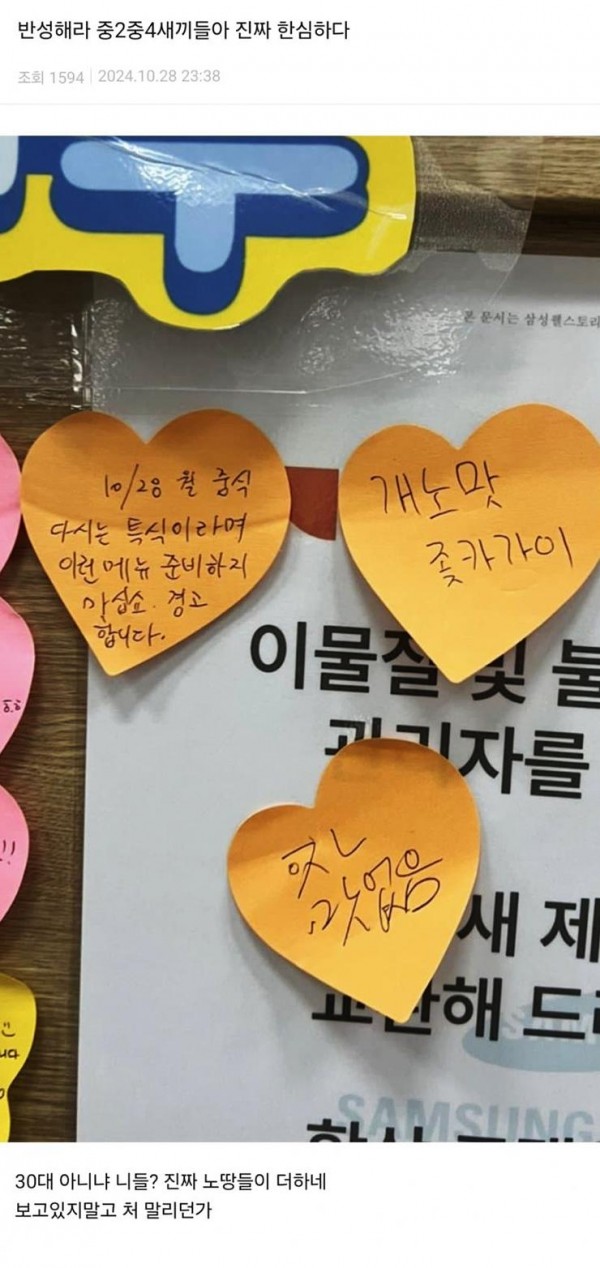 반성해라 중2중4새끼들아 진짜 한심하다
조회 1594 2024.10.28 23:38
본 문서는 삼성웰스토리
10/28 월 중식
다시는 특식이라며
이런메뉴 준비하지
마십쇼. 경고
합니다.
개노맛
좆카가이
이물질 및 불
관리자를
맛없음
새 제
교환해 드리
SAMSUNG
30대 아니냐 니들? 진짜 노땅들이 더하네
보고있지말고 처 말리던가